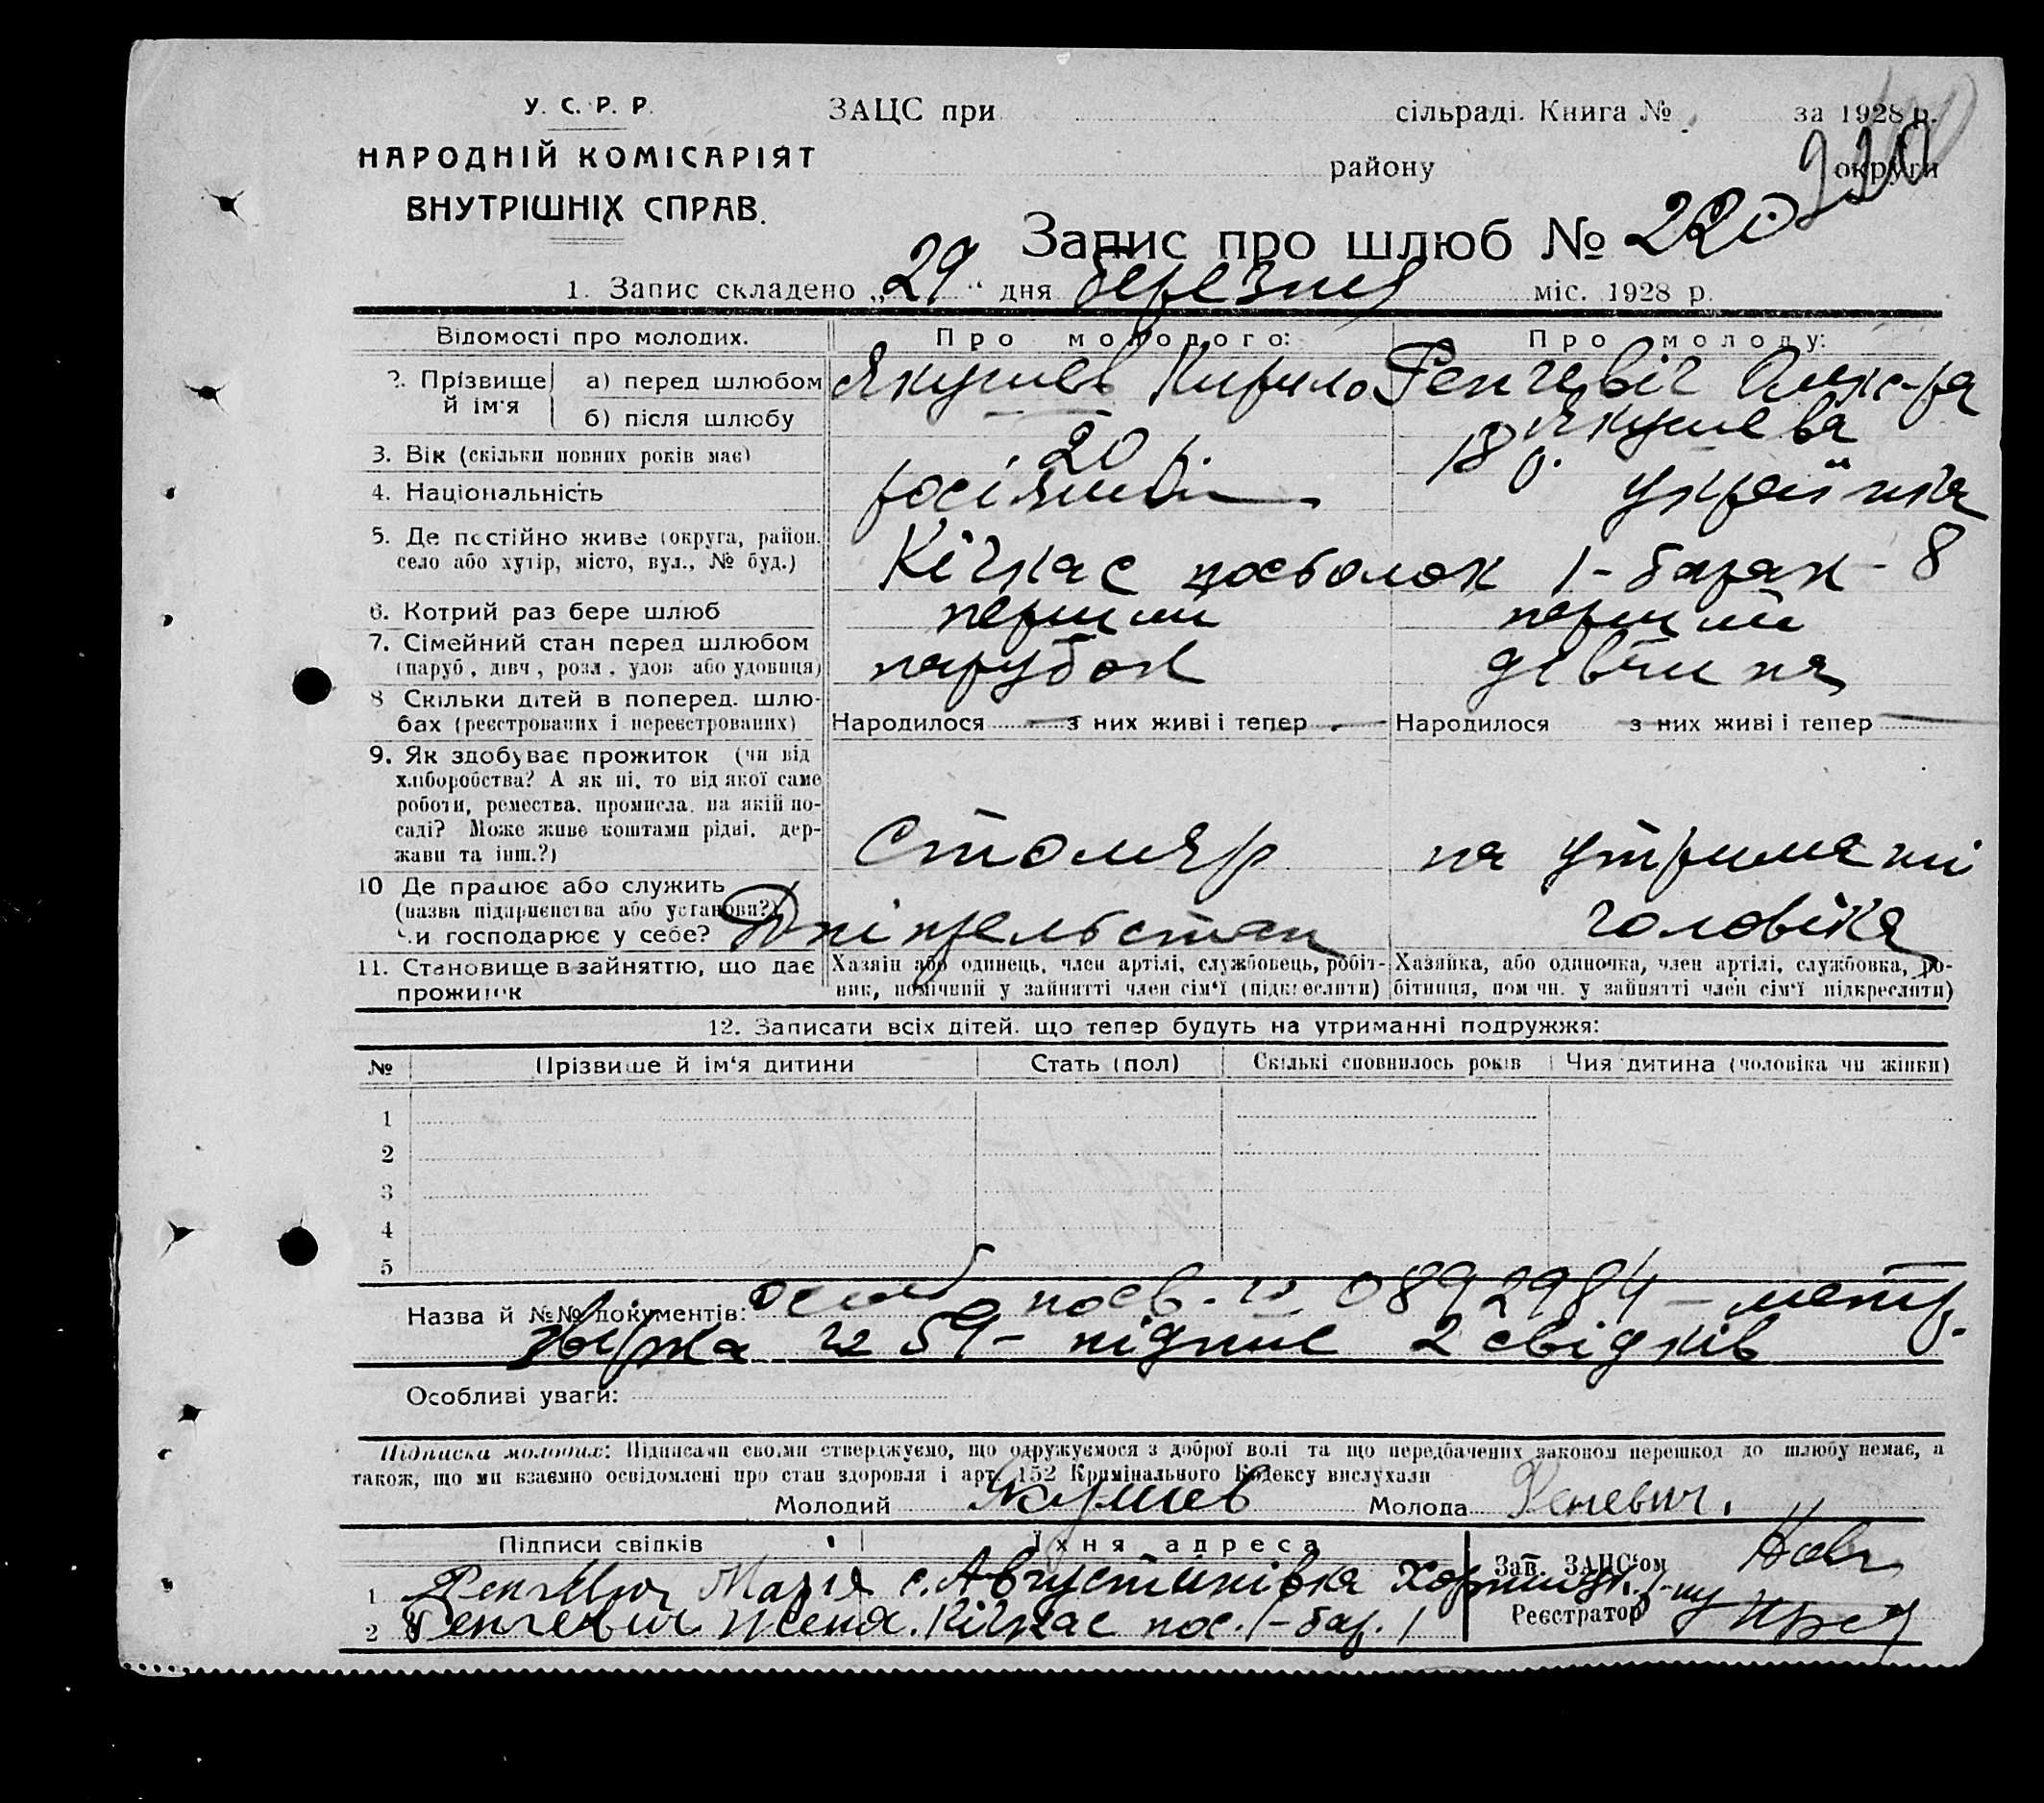 У. С. Р. Р.
НАРОДНІЙ КОМІСАРІЯТ
ВНУТРІШНІХ СПРАВ.
ЗАЦС при сільраді. Книга № за 1928 р.
району округи
220
Запис про шлюб № 220
1. Запис складено „29" дня березня міс. 1928 р.
Відомості про молодих. Про молодого: Про молоду:
2. Прізвище й ім'я
а) перед шлюбом Якушев Кирило Генчевіч Олекс-ра
б) після шлюбу Якушева
3. Вік (скільки повних років має) 20 р. 18 р.
4. Національність росіянин українка
5. Де постійно живе (округа, район, село або хутір, місто, вул., № буд.) Кічкас посьолок 1-барак-8
6. Котрий раз бере шлюб перший перший
7. Сімейний стан перед шлюбом (паруб., дівч., розл., удов. або удовиця) парубок дівчина
8 Скільки дітей в поперед. шлюбах (реєстрованих і нереєстрованих) Народилося — з них живі і тепер — Народилося з них живі і тепер —
9. Як здобуває прожиток (чи від хліборобства? А як ні, то від якої саме роботи, ремества, промисла, на якій посаді? Може живе коштами рідні, держави та інш.?) Столяр на утриманні
10 Де працює або служить (назва підприємства або установи?) Чи господарює у себе? чоловіка
11. Становище в зайняттю, що дає прожиток
Хазяїн або одинець, член артілі, службовець, робітник, помічний у зайнятті член сім'ї (підкреслити)
Хазяйка, або одиночка, член артілі, службовка, робітниця, помічн. у зайнятті член сім'ї підкреслити)
12. Записати всіх дітей, що тепер будуть на утриманні подружжя:
№ Прізвище й ім'я дитини Стать (пол) Скількі сповнилось років Чия дитина (чоловіка чи жінки)
1
2
3
4
5
Назва й №№ документів: особ посв. № 0892984 — метр.
№ 59 — підпис 2 свідків
Особливі уваги:
Підписка молодих: Підписами своїми стверджуємо, що одружуємося з доброї волі та що передбачених законом перешкод до шлюбу немає, а
також, що ми взаємно освідомлені про стан здоровля і арт. 152 Кримінального Кодексу вислухали
Молодий Якушев Молода Генчевич.
Підписи свідків Їхня адреса
1 Генчевич Марія с. Августинівка Хортиц. р-ну
2 Генчевич Женя. Кічкас пос. 1-бар. 1
Зав. ЗАЦС'ом
Реєстратор